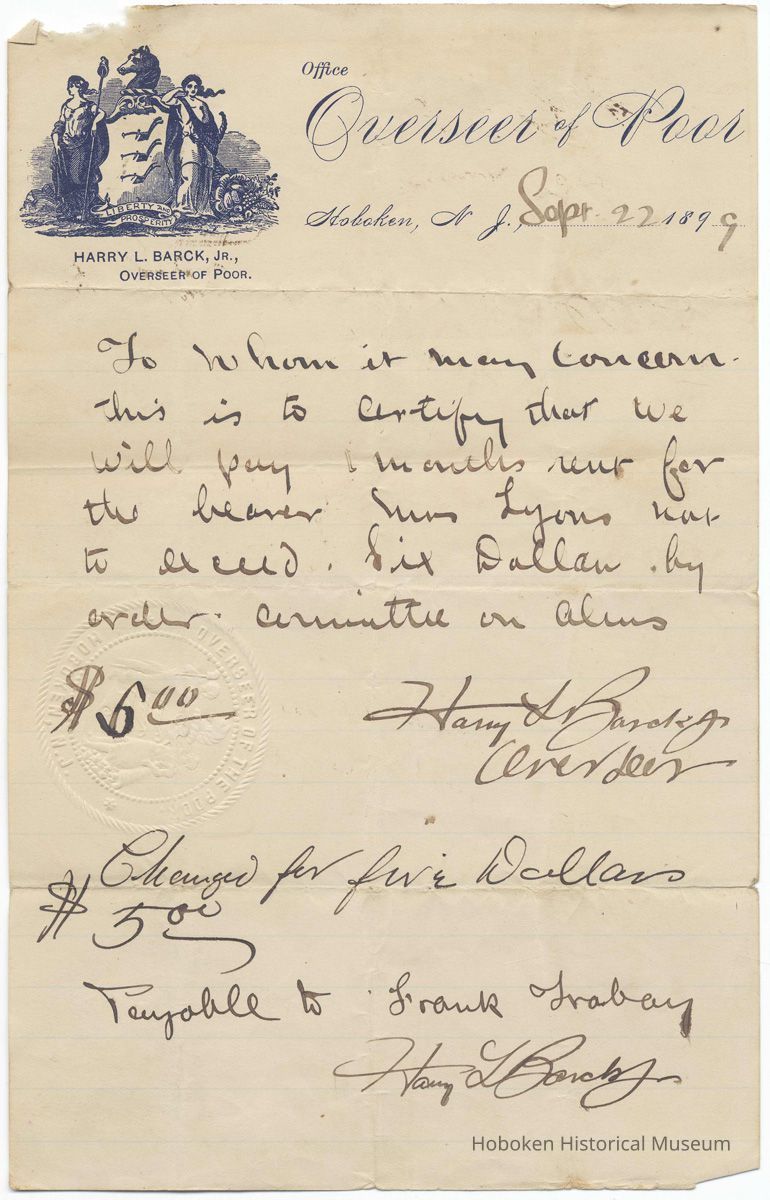 Office
Overseer of Poor
LIBERTY AND
PROSPERITY
Hoboken, N J., Sept. 22 1899
HARRY L. BARCK, JR.,
OVERSEER OF POOR.
To Whom it may Concern.
this is to certify that we
will pay 1 months rent for
the bearer Mrs Lyons not
to exceed. Six Dollars .by
order. committee on Alms
OVERSEER OF THE POOR
HOBOKEN N.J.
$ 6 00
Harry L Barck Jr
Overseer
Changed for five Dollars
$ 5 00
Payable to Frank
Harry L Barck Jr
Hoboken Historical Museum